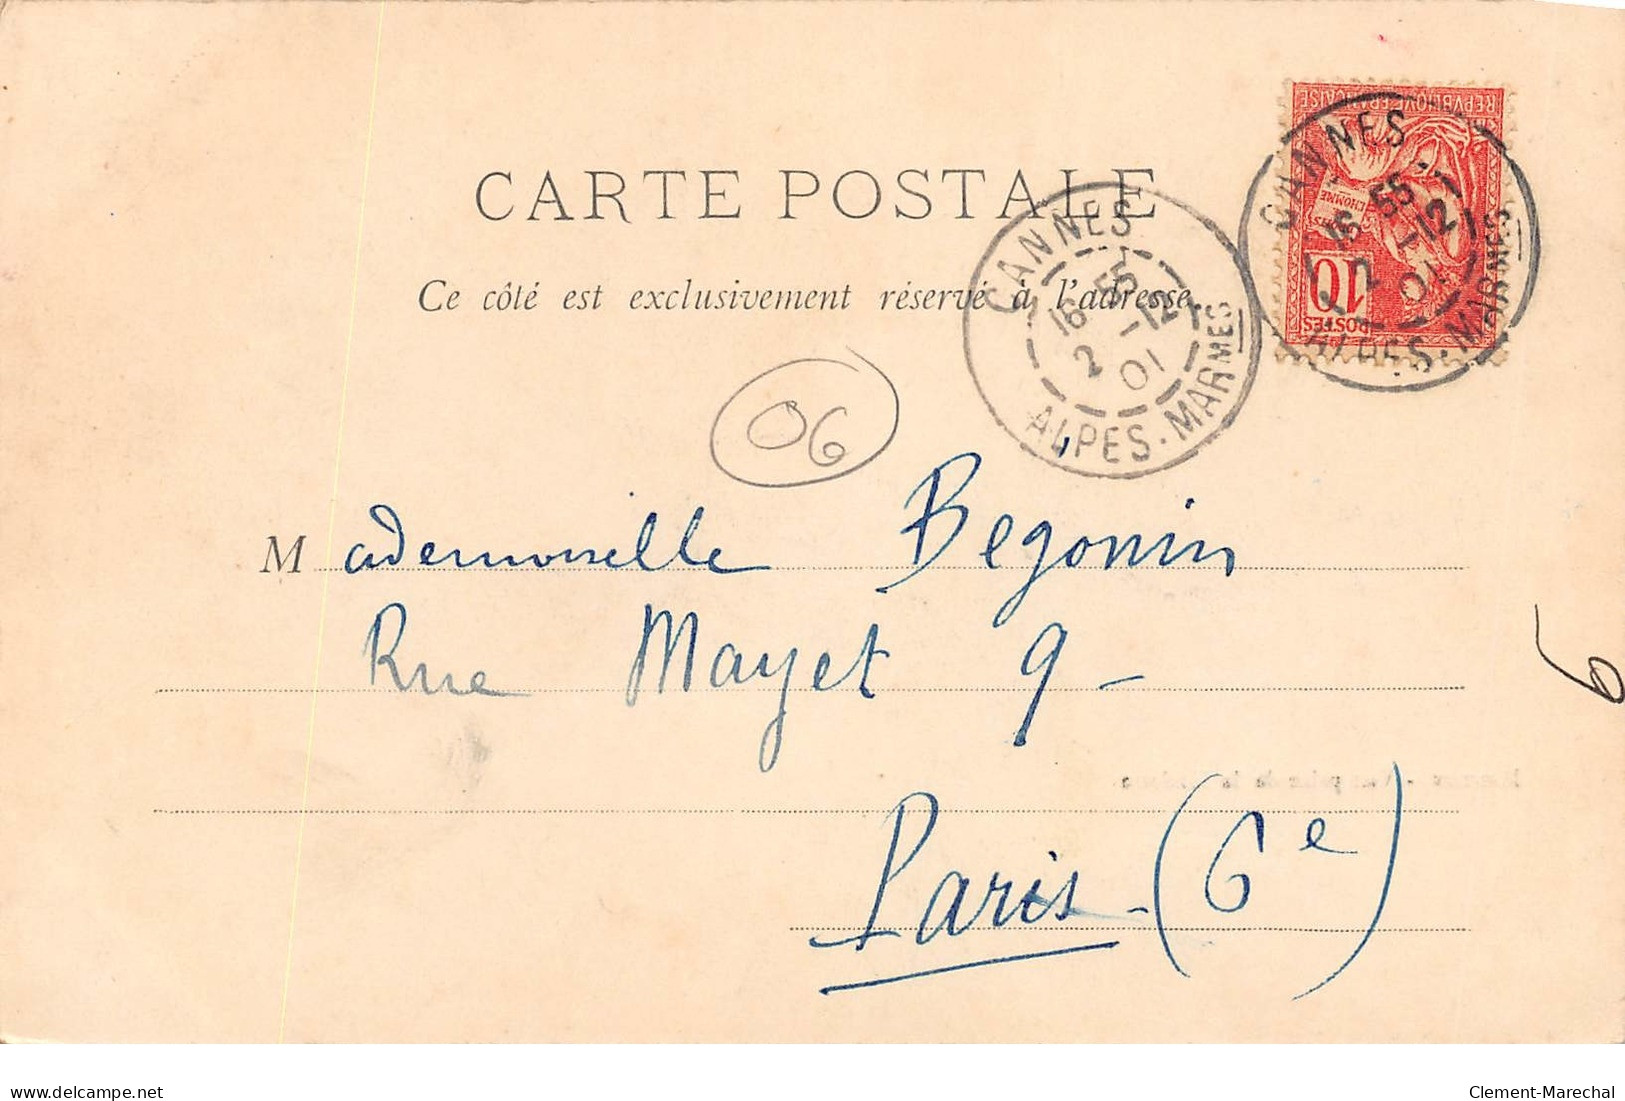 REPVBLIQVE FRANÇAISE
L'HOMME
10
POSTES
CANNES
16 55
2 -12
01
ALPES-MARMES
CARTE POSTALE
CANNES
16 55
2 -12
01
ALPES-MARMES
Ce côté est exclusivement réservé à l'adresse.
06
Mademoiselle Begonin
Rue Mayet 9-
6
Paris-(6e)
delcampe.net
Clement-Marechal